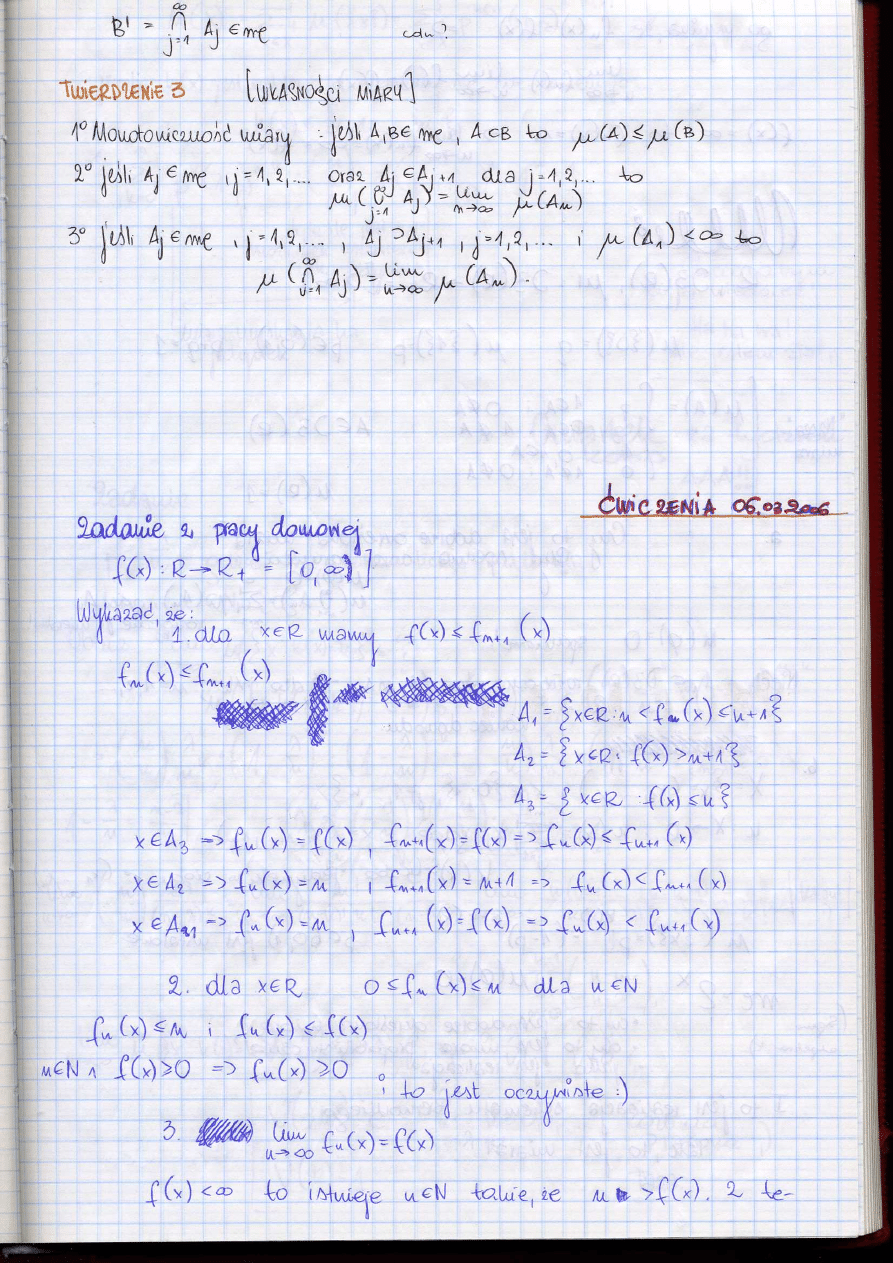 B' = ∞⋂j=1 Aj ∈ mę cdn?
TWIERDZENIE 3 [WŁASNOŚCI MIARY]
1° Monotoniczność miary : jeśli A,B∈ mę, A⊂B to μ(A) ≤ μ(B)
2° jeśli Aj ∈ mę, j=1,2,... oraz Aj ⊂ Aj+1 dla j=1,2,... to
μ(∞⋃j=1 Aj) = lim n→∞ μ(An)
3° jeśli Aj ∈ mę, j=1,2,..., Aj ⊃ Aj+1, j=1,2,... i μ(A1) < ∞ to
μ(∞⋂j=1 Aj) = lim n→∞ μ(An).
ĆWICZENIA 06.03.2006
Zadanie z pracy domowej
f(x) : R → R+ = [0,∞)]
Wykazać, że:
1. dla x∈R mamy f(x) ≤ fn+1(x)
fn(x) ≤ fn+1(x)
A1 = {x∈R : n < fn(x) ≤ n+1}
A2 = {x∈R : f(x) > n+1}
A3 = {x∈R : f(x) ≤ n}
x∈A3 => fn(x) = f(x), fn+1(x) = f(x) => fn(x) ≤ fn+1(x)
x∈A2 => fn(x) = n, fn+1(x) = n+1 => fn(x) < fn+1(x)
x∈A1 => fn(x) = n, fn+1(x) = f(x) => fn(x) < fn+1(x)
2. dla x∈R 0 ≤ fn(x) ≤ n dla n∈N
fn(x) ≤ n i fn(x) ≤ f(x)
n∈N ∧ f(x) ≥ 0 => fn(x) ≥ 0 i to jest oczywiste :)
3. lim n→∞ fn(x) = f(x)
f(x) < ∞ to istnieje n∈N takie, że n > f(x). Z te-